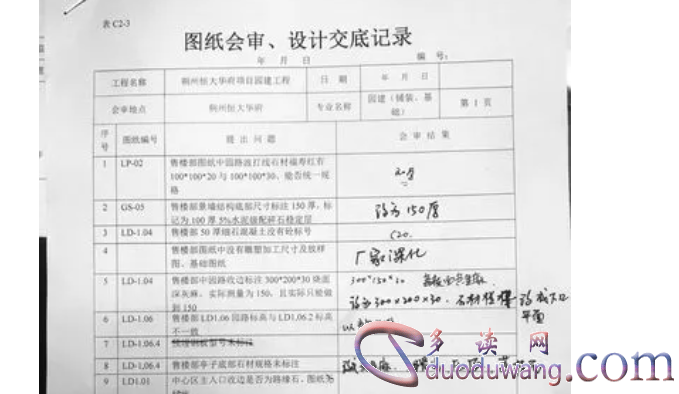 表 C2-3
图纸会审、设计交底记录
年 月 日 编 号:
工程名称 荆州恒大华府项目园建工程 日 期 年 月 日
会审地点 荆州恒大华府 专业名称 园建（铺装、基础） 第 1 页
序号 图纸编号 提 出 问 题 会 审 结 果
1 LP-02 售楼部图纸中园路波打线石材福寿红有
100*100*20 与 100*100*30，能否统一规
格
2 GS-05 售楼部景墙结构底部尺寸标注 150 厚，标 改为150厚
记为 100 厚 5%水泥级配碎石稳定层
3 LD-1.04 售楼部 50 厚细石混凝土没有砼标号 C20.
4 售楼部图纸中没有雕塑加工尺寸及放样 厂家深化
图、基础图纸
5 LD-1.04 售楼部中园路收边标注 300*200*30 烧面 300*150*30
深灰麻，实际测量为 150，且实际只能做 改为300×200×30.
到 150 平面
6 LD-1.06 售楼部 LD1.06 园路标高与 LD1.06.2 标高
不一致
7 LD-1.06.4
8 LD-1.06.4 售楼部亭子底部石材规格未标注
9 LD1.01 中心区主入口收边是否为路缘石，图纸
多读网
duoduwang.com